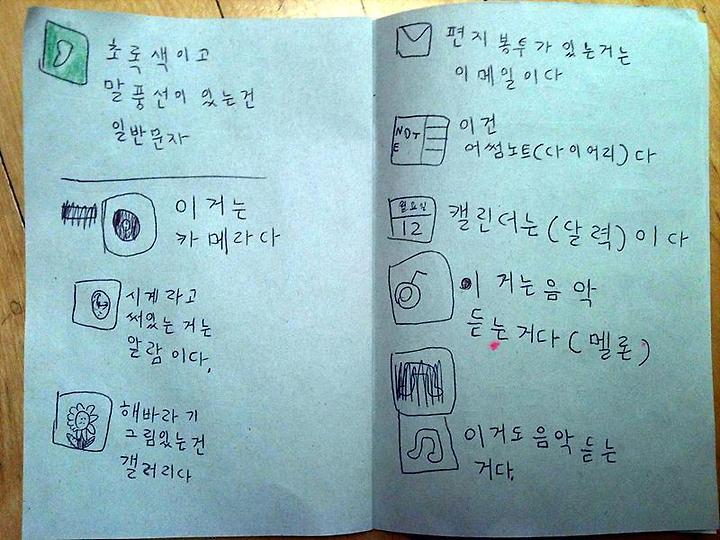 초록색이고
말풍선이 있는건
일반문자
이거는
카메라다
시계라고
써있는거는
알람이다.
해바라기
그림있는건
갤러리다
편지봉투가 있는거는
이메일이다
NOT
E
이건
어썸노트(다이어리)다
월요일
12
캘린더는(달력)이다
이거는음악
듣는거다(멜론)
이거도음악듣는
거다.